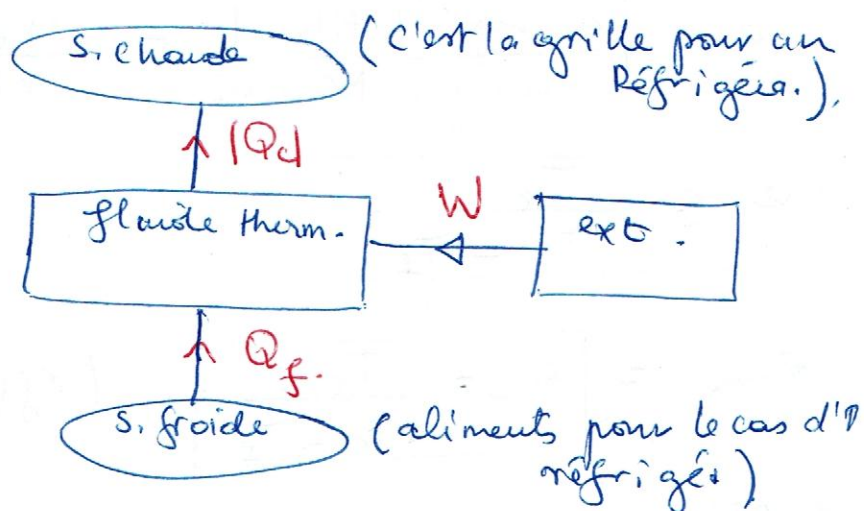 S. chaude
(c'est la grille pour un
Réfrigéra.).
|Qc|
fluide therm.
W
ext.
Qf.
S. froide
(aliments pour le cas d'1
réfrigér)